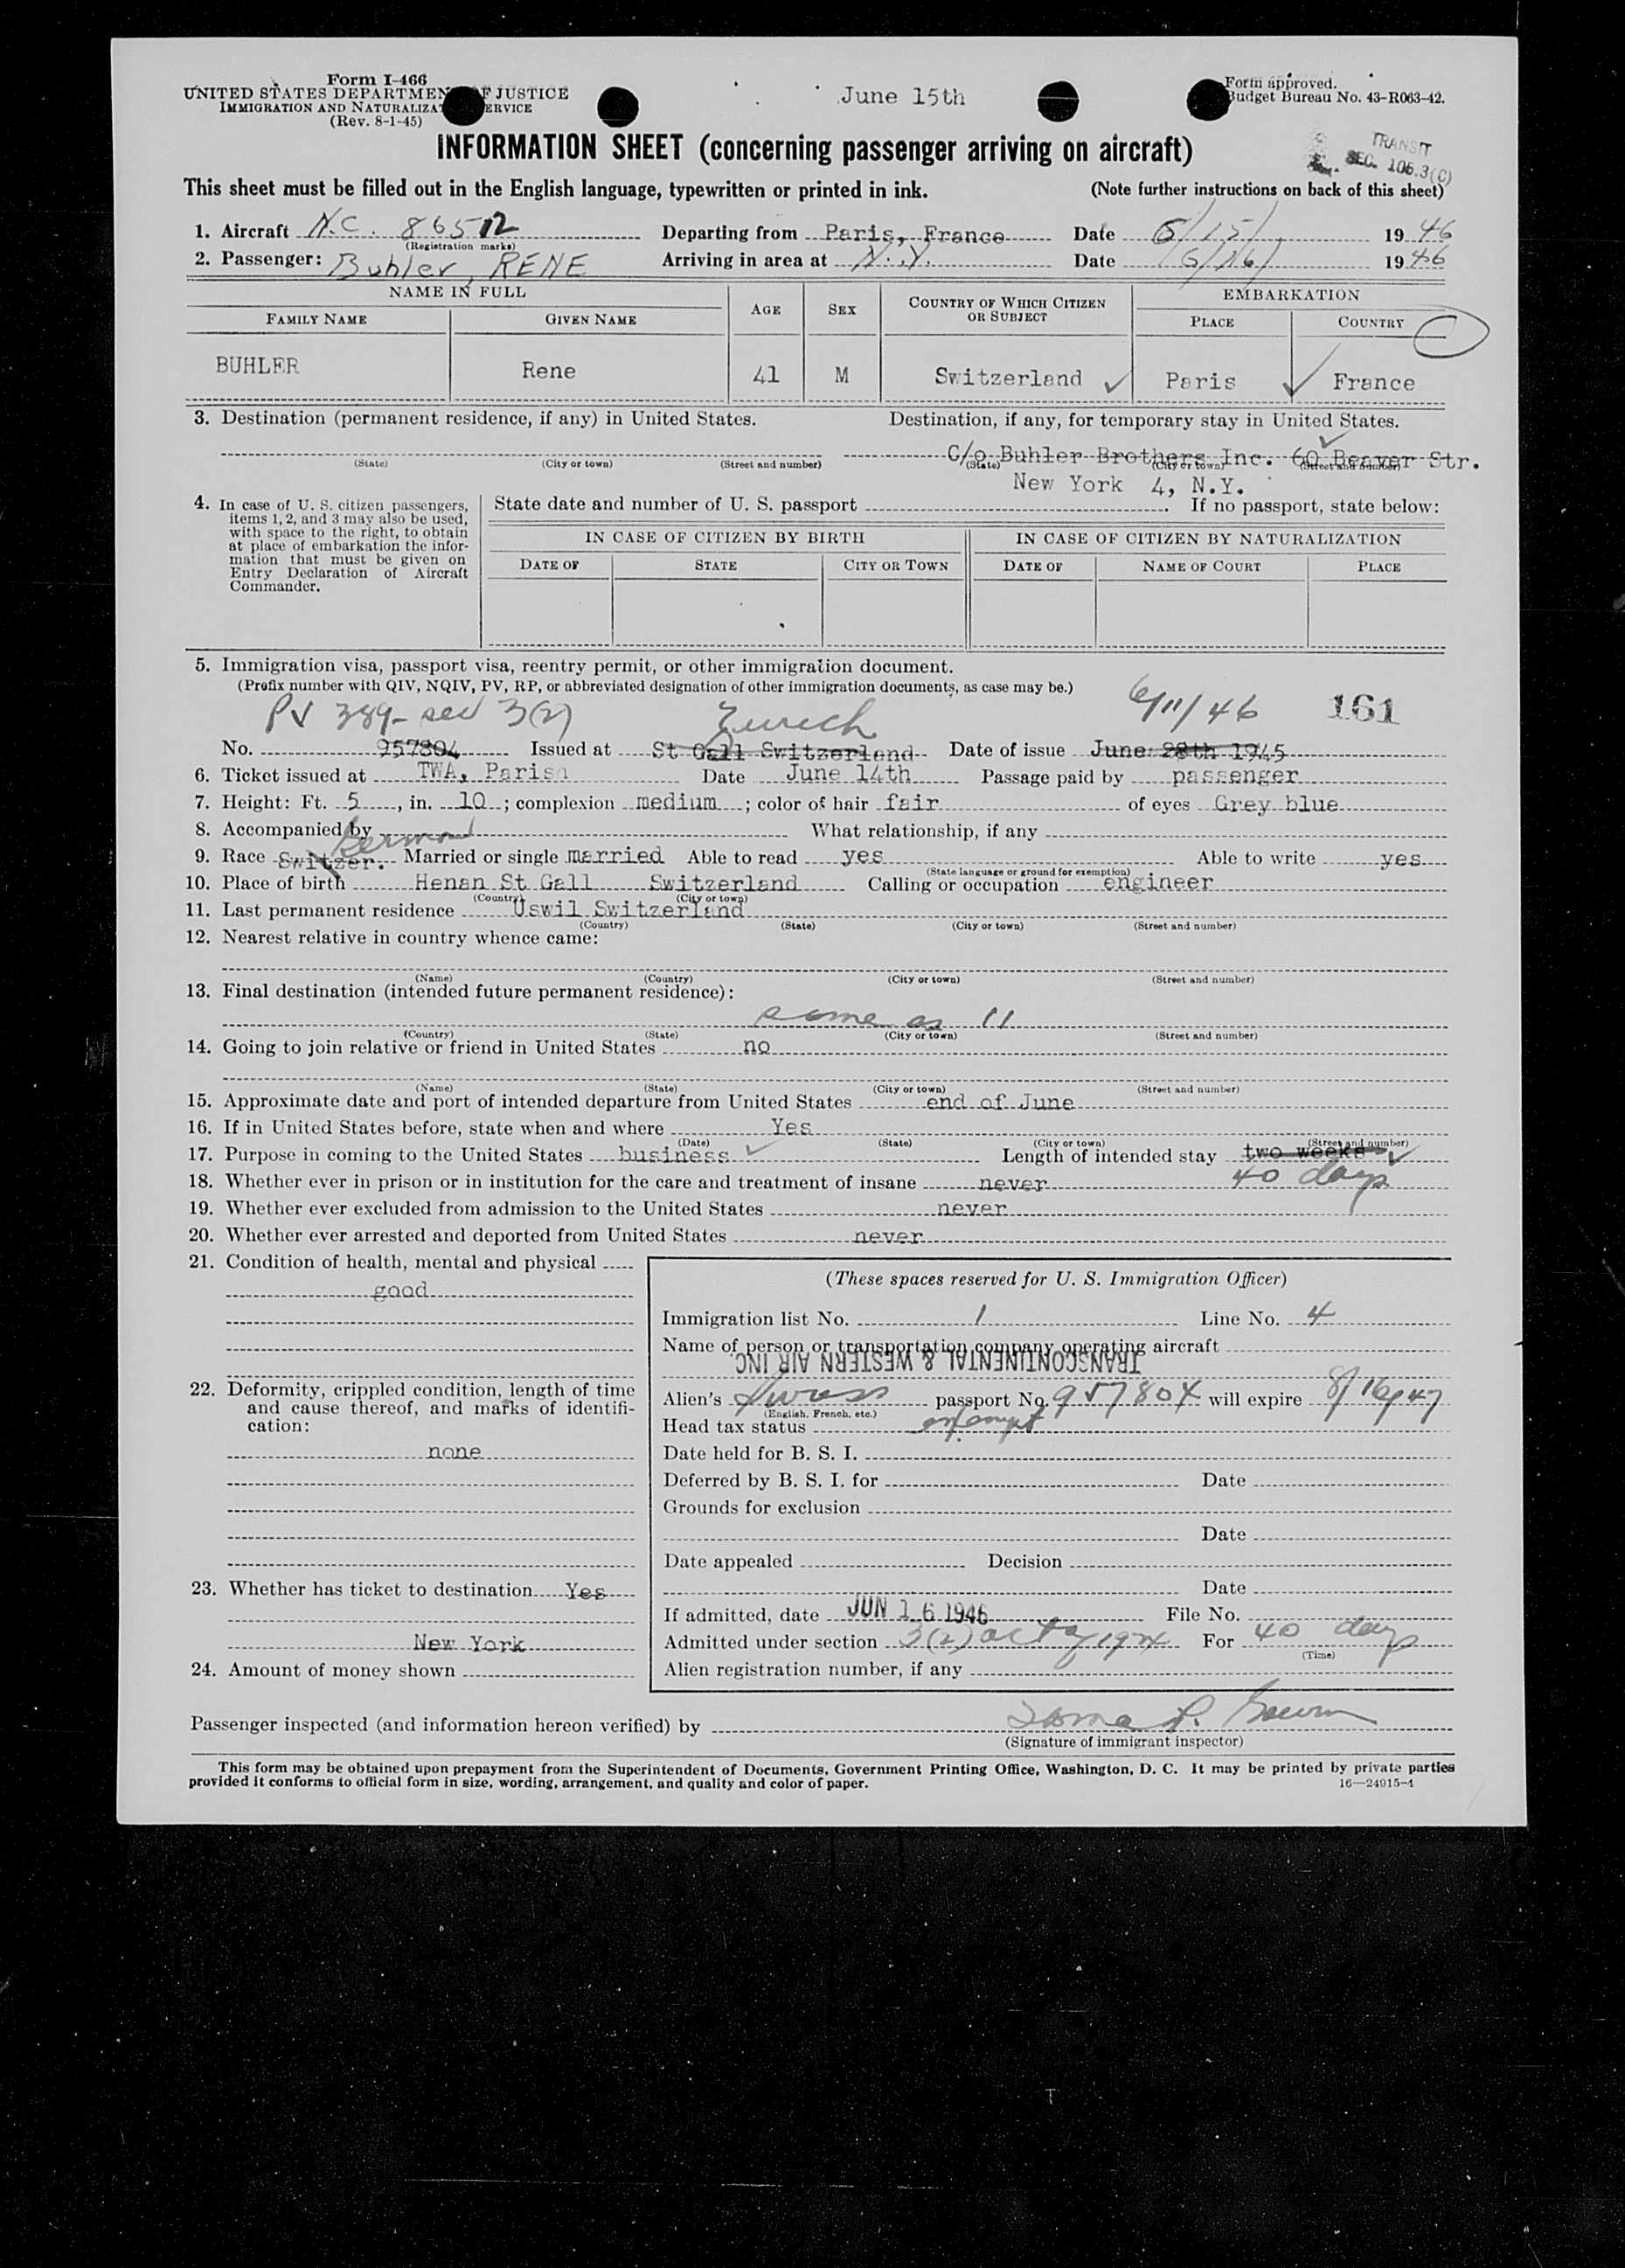 Form I-466
UNITED STATES DEPARTMENT OF JUSTICE
IMMIGRATION AND NATURALIZATION SERVICE
(Rev. 8-1-45)
June 15th
Form approved.
Budget Bureau No. 43-R063-42.
INFORMATION SHEET (concerning passenger arriving on aircraft)
TRANSIT
SEC. 105.3(C)
This sheet must be filled out in the English language, typewritten or printed in ink. (Note further instructions on back of this sheet)
1. Aircraft N.C. 86512 Departing from Paris, France Date 6/15/ 1946
(Registration marks)
2. Passenger: Buhler, RENE Arriving in area at N.Y. Date 6/16/ 1946
NAME IN FULL AGE SEX COUNTRY OF WHICH CITIZEN OR SUBJECT EMBARKATION
FAMILY NAME GIVEN NAME PLACE COUNTRY
BUHLER Rene 41 M Switzerland Paris France
3. Destination (permanent residence, if any) in United States. Destination, if any, for temporary stay in United States.
C/o Buhler Brothers Inc. 60 Beaver Str.
(State) (City or town) (Street and number) (State) (City or town) (Street and number)
New York 4, N.Y.
4. In case of U. S. citizen passengers, items 1, 2, and 3 may also be used, with space to the right, to obtain at place of embarkation the information that must be given on Entry Declaration of Aircraft Commander.
State date and number of U. S. passport . If no passport, state below:
IN CASE OF CITIZEN BY BIRTH IN CASE OF CITIZEN BY NATURALIZATION
DATE OF STATE CITY OR TOWN DATE OF NAME OF COURT PLACE
5. Immigration visa, passport visa, reentry permit, or other immigration document.
(Prefix number with QIV, NQIV, PV, RP, or abbreviated designation of other immigration documents, as case may be.)
PV 389- sec 3(2) Zurich 6/11/46 161
No. 957804 Issued at St Gall Switzerland Date of issue June 28th 1945
6. Ticket issued at TWA, Paris Date June 14th Passage paid by passenger
7. Height: Ft. 5, in. 10; complexion medium; color of hair fair of eyes Grey blue
8. Accompanied by What relationship, if any
German
9. Race Switzer. Married or single married Able to read yes Able to write yes
(State language or ground for exemption)
10. Place of birth Henan St Gall Switzerland Calling or occupation engineer
(Country) (City or town)
11. Last permanent residence Uswil Switzerland
(Country) (State) (City or town) (Street and number)
12. Nearest relative in country whence came:
(Name) (Country) (City or town) (Street and number)
13. Final destination (intended future permanent residence):
same as 11
(Country) (State) (City or town) (Street and number)
14. Going to join relative or friend in United States no
(Name) (State) (City or town) (Street and number)
15. Approximate date and port of intended departure from United States end of June
16. If in United States before, state when and where Yes
(Date) (State) (City or town) (Street and number)
17. Purpose in coming to the United States business Length of intended stay two weeks
40 days
18. Whether ever in prison or in institution for the care and treatment of insane never
19. Whether ever excluded from admission to the United States never
20. Whether ever arrested and deported from United States never
21. Condition of health, mental and physical
good
22. Deformity, crippled condition, length of time and cause thereof, and marks of identification:
none
23. Whether has ticket to destination Yes
New York
24. Amount of money shown
(These spaces reserved for U. S. Immigration Officer)
Immigration list No. 1 Line No. 4
Name of person or transportation company operating aircraft
TRANSCONTINENTAL & WESTERN AIR INC.
Alien's Swiss passport No. 957804 will expire 8/16/47
(English, French, etc.)
Head tax status exempt
Date held for B. S. I.
Deferred by B. S. I. for Date
Grounds for exclusion
Date
Date appealed Decision
Date
If admitted, date JUN 16 1946 File No.
Admitted under section 3(2) act of 1924 For 40 days
(Time)
Alien registration number, if any
Passenger inspected (and information hereon verified) by
(Signature of immigrant inspector)
This form may be obtained upon prepayment from the Superintendent of Documents, Government Printing Office, Washington, D. C. It may be printed by private parties
provided it conforms to official form in size, wording, arrangement, and quality and color of paper. 16—24915-1